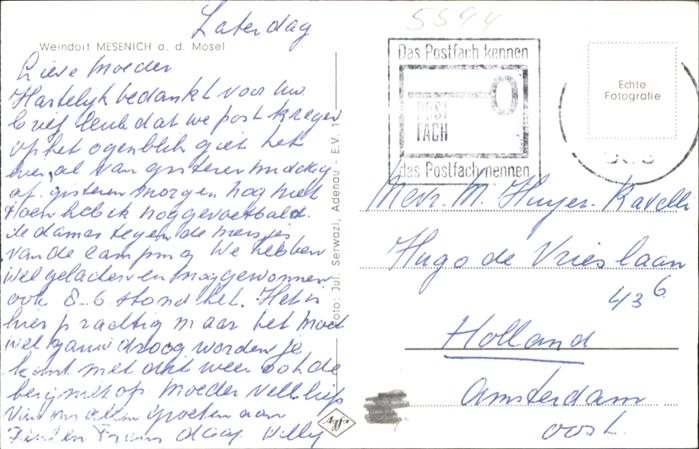 5594
Zaterdag
Weindorf MESENICH a. d. Mosel
Lieve Moeder
Hartelijk bedankt voor uw
brief leuk dat we post kregen
op het ogenblik giet het
even, al van gisteren middag
af. gisteren morgen nog niet
toen heb ik nog gevoetbald.
de dames tegen de meisjes
van de camping We hebben
wel gelachen en nog gewonnen
ook 8-6 stond het. Het is
hier prachtig maar het moet
wel gauw droog worden je
komt met dit weer ook de
berg niet op. Moeder veel liefs
van ons allen groeten aan
en Frans daag Willy
Foto: Jul. Serwazi, Adenau / E.V. 1
Das Postfach kennen
POST
FACH
das Postfach nennen
Echte
Fotografie
Mevr. M. Huyer-
Hugo de Vrieslaan
43 6
Holland
Amsterdam
oost.
Agfa